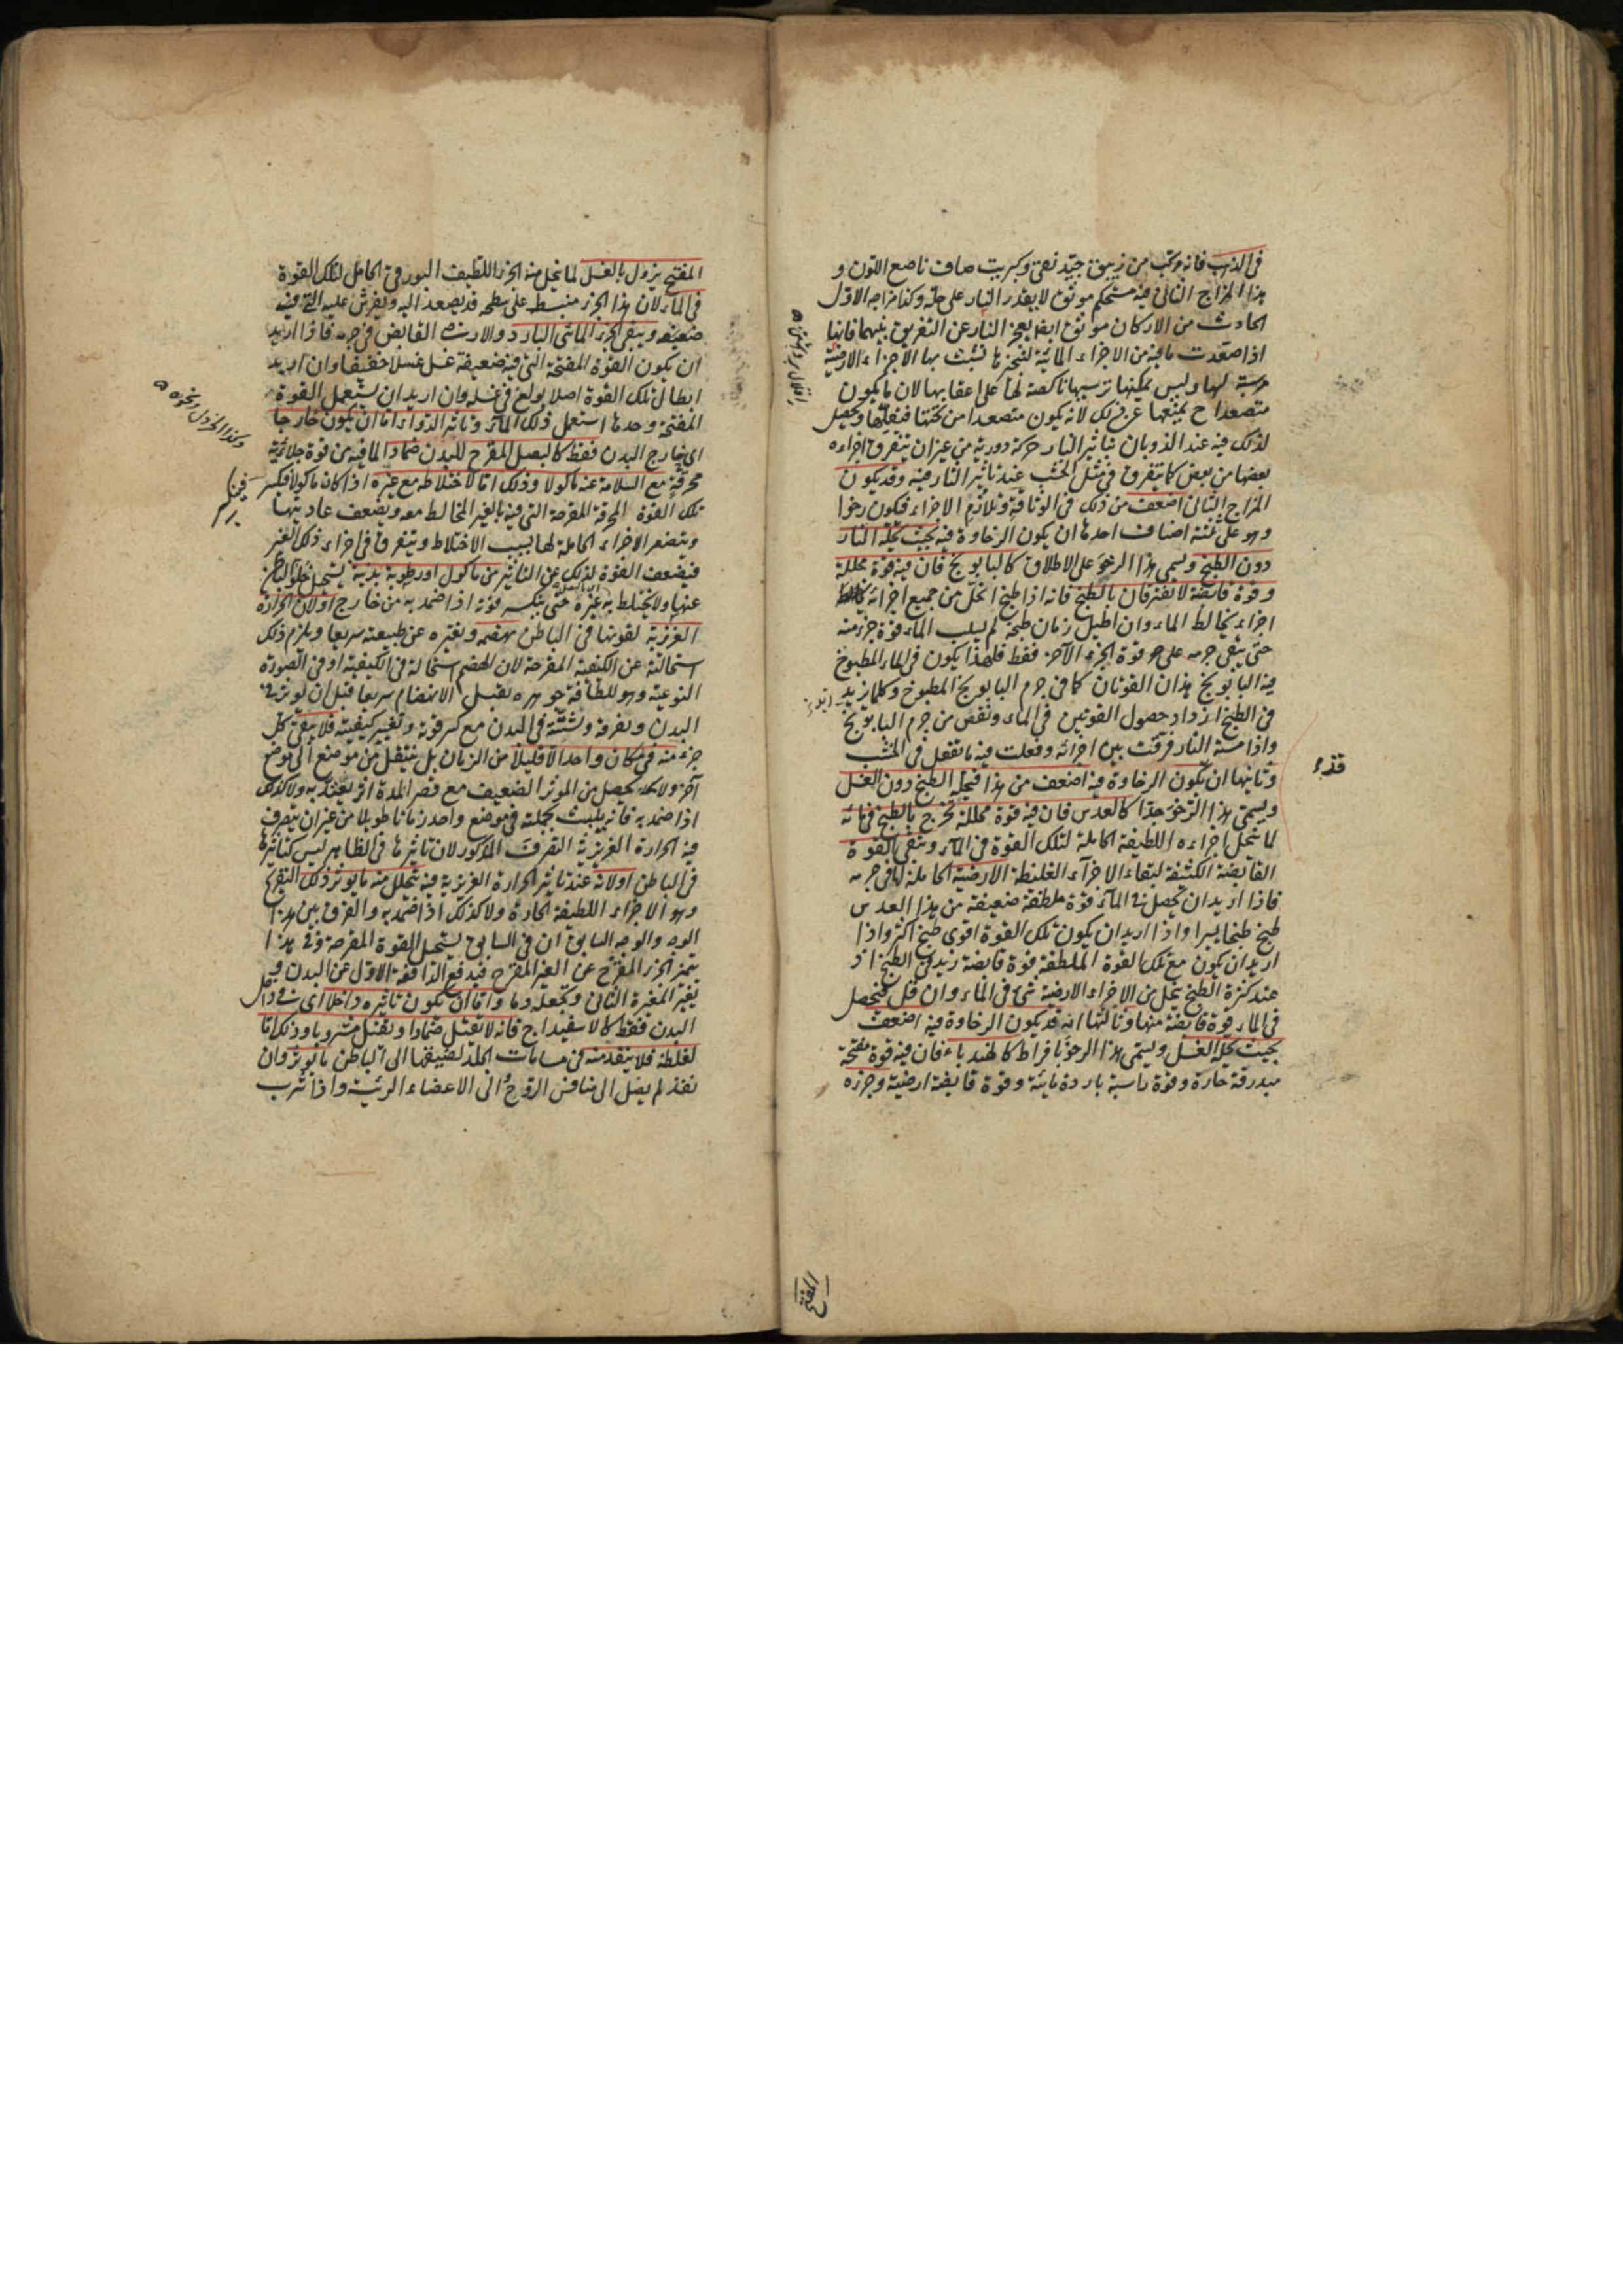 فى الذهب فانه مركب من زيبق جيد نقى وكبريت صاف ناصع اللون و
هذا المزاج الثانى فيه مستحكم موثوق لا يقدر النار على حله وكذا مزاجه الاول
الحادث من الاركان موثوق ايضا يعجز النار عن التفريق بينهما فانها
اذا صعدت ما فيه من الاجزاء المائية لتبخرها تشبثت بها الاجزاء الارضية
مرسبة لها وليس يمكنها ترسيبها ناكصة لها على اعقابها لان ما يكون
متصعدا ح يمنعها عن ذلك لانه يكون متصعدا من تحتها فيقلبها ويحصل
لذلك فيه عند الذوبان بتأثير النار حركة دورية من غير ان يتفرق اجزاءه
بعضها من بعض كما يتفرق فى مثل الخشب عند تأثير النار فيه وقد يكون
المزاج الثانى اضعف من ذلك فى الوثاقة وتلازم الاجزاء فيكون رخوا
وهو على ثلثة اصناف احدها ان يكون الرخاوة فيه بحيث تحله النار
دون الطبخ ويسمى هذا الرخو على الاطلاق كالبابونج فان فيه قوة محللة
وقوة قابضة لا تفترقان بالطبخ فانه اذا طبخ انحل من جميع اجزائه
اجزاء يخالط الماء وان اطيل زمان طبخه لم يسلب الماء قوة جزء منه
حتى يبقى جرمه على قوة الجزء الآخر فقط فلهذا يكون فى الماء المطبوخ
فيه البابونج هذان القوتان كما فى جرم البابونج المطبوخ وكلما يزيد
فى الطبخ ازداد حصول القوتين فى الماء ونقص من جرم البابونج
واذا مسته النار فرقت بين اجزائه وفعلت فيه ما تفعل فى الخشب
وثانيها ان يكون الرخاوة فيه اضعف من هذا فيحله الطبخ دون الغسل
ويسمى هذا الرخو جدا كالعدس فان فيه قوة محللة تخرج بالطبخ فى مائه
لما تنحل اجزاءه اللطيفة الحاملة لتلك القوة فى الماء وتبقى القوة
القابضة الكثيفة لبقاء الاجزاء الغليظة الارضية الحاملة لها فى جرمه
فاذا اريد ان يحصل فى الماء قوة ملطفة ضعيفة من هذا العدس
طبخ طبخا يسيرا واذا اريد ان يكون تلك القوة اقوى طبخ اكثر واذا
اريد ان يكون مع تلك القوة الملطفة قوة قابضة زيد فى الطبخ اذ
عند كثرة الطبخ ينحل من الاجزاء الارضية شئ فى الماء وان قل فيحصل
فى الماء قوة قابضة منها وثالثها انه قد يكون الرخاوة فيه اضعف
بحيث يحله الغسل ويسمى هذا الرخو بافراط كالهندباء فان فيه قوة مفتحة
مبدرقة حارة وقوة راسبة باردة مائية وقوة قابضة ارضية وجزءه
قذء
المفتح
المفتح يزول بالغسل لما ينحل منه الجزء اللطيف البورقى الحامل لتلك القوة
فى الماء لان هذا الجزء منبسط على سطحه قد يصعد اليه ويفرش عليه
ضعيفه ويبقى الجزء المائى البارد والارضى القابض فى جرمه فاذا اريد
ان يكون القوة المفتحة التى فيه ضعيفة غسل غسلا خفيفا وان اريد
ابطال تلك القوة اصلا بولغ فى غسله وان اريد ان يستعمل القوة
المفتحة وحدها استعمل ذلك الماء وتأثير الدواء اما ان يكون خارجا
اى خارج البدن فقط كالبصل المقرح للبدن ضمادا لما فيه من قوة جلائية
محرقة مع السلامة عنه ماكولا وذلك اما لاختلاطه مع غيره اذا كان ماكولا فيكسر
تلك القوة المحرقة المقرحة التى فيه بالغير المخالط معه ويضعف عاديتها
ويتصغر الاجزاء الحاملة لها بسبب الاختلاط ويتفرق فى اجزاء ذلك الغير
فيضعف القوة لذلك عن التأثير من ماكول او رطوبة بدنية يستحيل خلو الباطن
عنها ولا يختلط به غيره حتى ينكسر قوته اذا ضمد به من خارج او لان الحرارة
الغريزية لقوتها فى الباطن تهضمه وتغيره عن طبيعته سريعا ويلزم ذلك
استحالته عن الكيفية المقرحة لان الهضم استحالة فى الكيفية او فى الصورة
النوعية وهو للطافة جوهره يقبل الانهضام سريعا قبل ان يؤثر فى
البدن وتفرقه وتشتته فى البدن مع كسر قوته وتغيير كيفيته فلا يبقى كل
جزء منه فى مكان واحد الا قليلا من الزمان بل ينتقل من موضع الى موضع
آخر ولا يحصل من المؤثر الضعيف مع قصر المدة اثر يعتد به ولا كذلك
اذا ضمد به فانه يلبث بجملته فى موضع واحد زمانا طويلا من غير ان يتصرف
فيه الحرارة الغريزية التصرف المذكور لان تأثيرها فى الظاهر ليس كتأثيرها
فى الباطن او لانه عند تأثير الحرارة الغريزية فيه يتحلل منه ما يؤثر ذلك التقرح
وهو الاجزاء اللطيفة الحادة ولا كذلك اذا ضمد به والفرق بين هذا
الوجه والوجه السابق ان فى السابق يستحيل القوة المقرحة وفى هذا
يتميز الجزء المقرح عن الغير المقرح فيدفع الدافعة الاول عن البدن
يغير المغيرة الثانى وتجعله دما واما ان يكون تأثيره داخلا اى فى داخل
البدن فقط كالاسفيداج فانه لا تقتل ضمادا وتقتل مشروبا وذلك اما
لغلظه فلا ينفذ منه فى مسامات الجلد لضيقها الى الباطن ما يؤثر وان
نفذ لم يصل الى منافس الروح والى الاعضاء الرئيسة واذا شرب